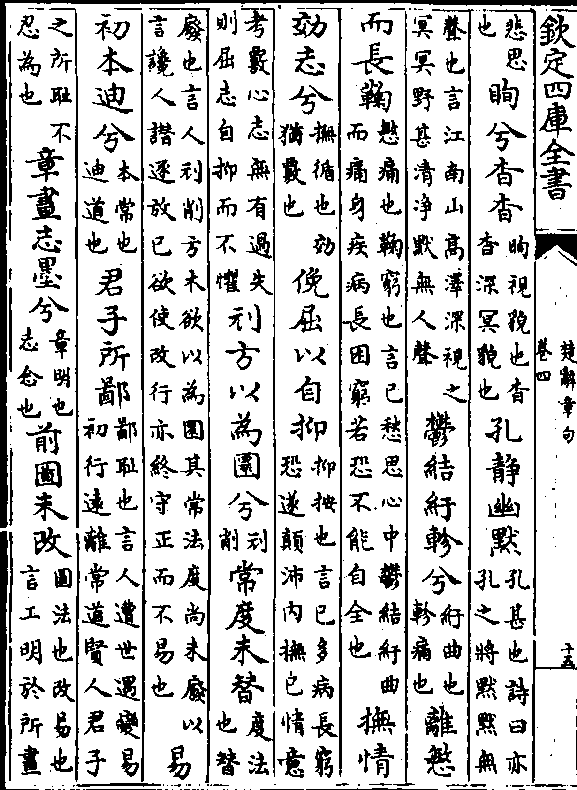 欽定四庫全書
楚辭章句
卷四
十五
悲思
也
眴兮杳杳
眴視貌也杳
杳深冥貌也
孔静幽默
孔甚也詩曰亦
孔之將黙黙無
聲也言江南山高澤深視之
冥冥野甚清淨默無人聲
鬱結紆軫兮
紆曲也
軫痛也
離慜
而長鞠
慜痛也鞠窮也言已愁思心中鬱結紆曲
而痛身疾病長困窮若恐不能自全也
撫情
効志兮
撫循也効
猶覈也
俛屈以自抑
抑按也言已多病長窮
恐遂顛沛内撫已情意
考覈心志無有過失
則屈志自抑而不懼
刓方以為圜兮
刓
削
常度未替
度法
也替
廢也言人刓削方木欲以為圜其常法度尚未廢以
言讒人譖逐放已欲使改行亦終守正而不易也
易
初本迪兮
本常也
迪道也
君子所鄙
鄙恥也言人遭世遇變易
初行遠離常道賢人君子
之所恥不
忍為也
章畫志墨兮
章明也
志念也
前圖未改
圖法也改易也
言工明於所畫